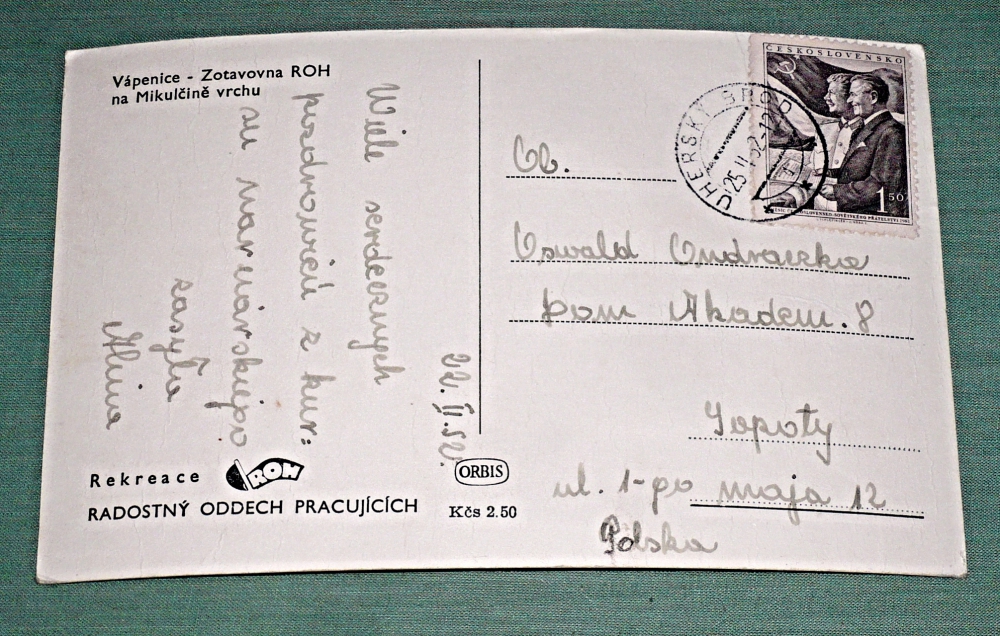 Vápenice - Zotavovna ROH
na Mikulčině vrchu
22.II.52.
Wiele serdecznych
pozdrowień z kur=
su narciarskiego
zasyła
Alina
Rekreace ROH
RADOSTNÝ ODDECH PRACUJÍCÍCH
ORBIS
Kčs 2.50
ČESKOSLOVENSKO
1 50
UHERSKÝ BROD
25.II.52-12
Ob.
Oswald Ondraczka
Dom Akadem. 8
Sopoty
ul. 1-go maja 12
Polska